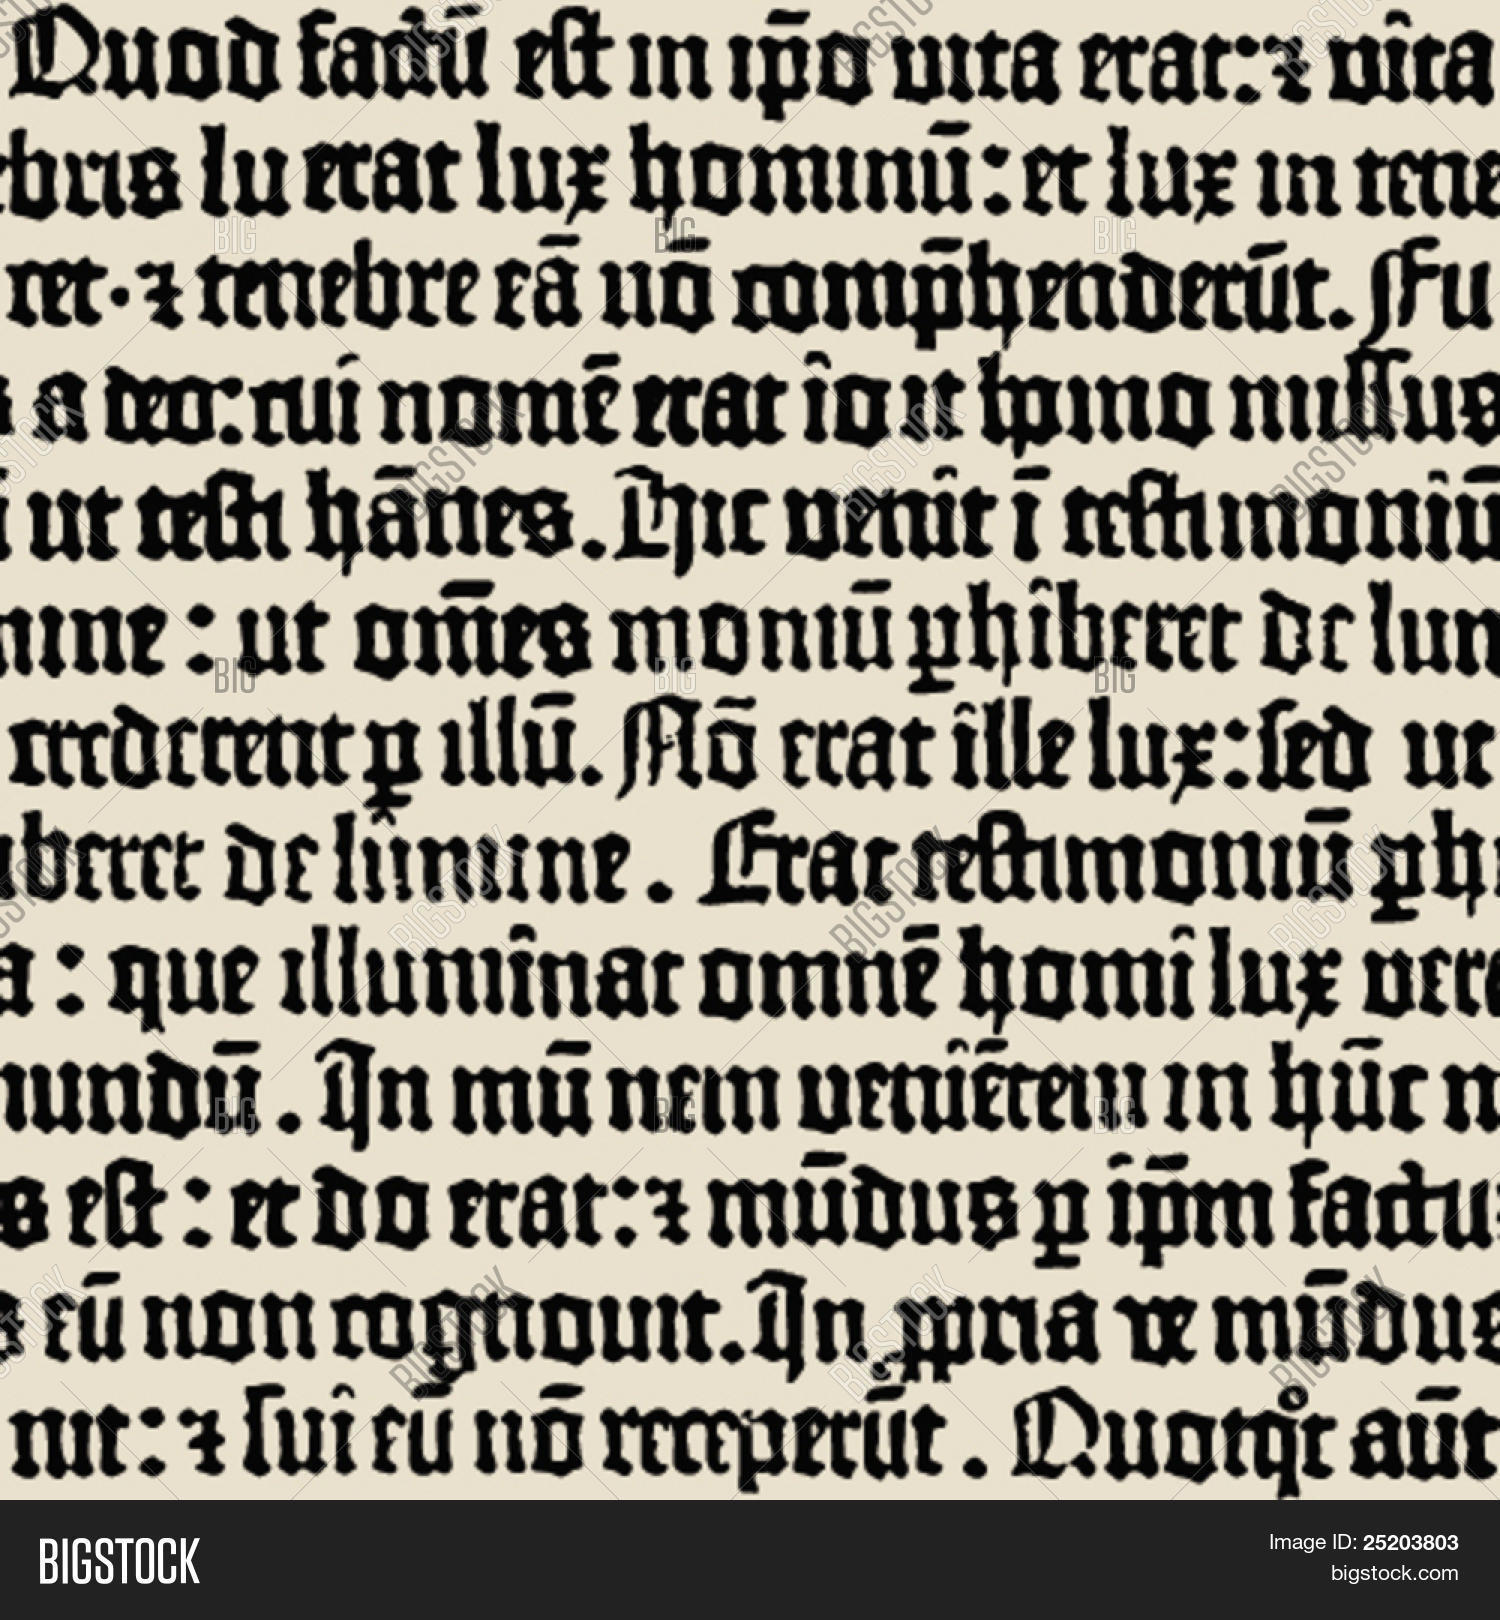 Quod factū est in ip̄o uita erat:⁊ vita
ebris lu erat lux hominū:et lux in tene
cet.⁊ tenebre eā nō comp̄henderūt. Fu
s a deo:cui nomē erat io it homo missus
ut testi hānes. Hic venit ī testimoniū
mine : ut om̄es moniū ꝑhiberet de lum
crederent ꝑ illū. Nō erat ille lux:sed ut
iberet de lumine . Erat testimoniū ꝑhi
a : que illuminat omnē homi lux vere
mundū . In mū nem in hūc m
s est : et do erat:⁊ mūdus ꝑ ip̄m factu
s eū non cognouit.In ꝓpria ve mūdus
nit:⁊ sui eū nō receperūt . Quotqͦt aūt
BIGSTOCK
Image ID: 25203803
bigstock.com